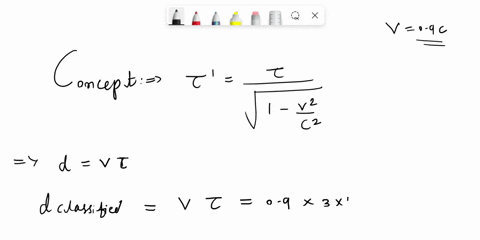 V = 0.9c
Concept:⇒ τ' = τ / √(1 - v²/c²)
⇒ d = v τ
d classified = v τ = 0.9 × 3 × '